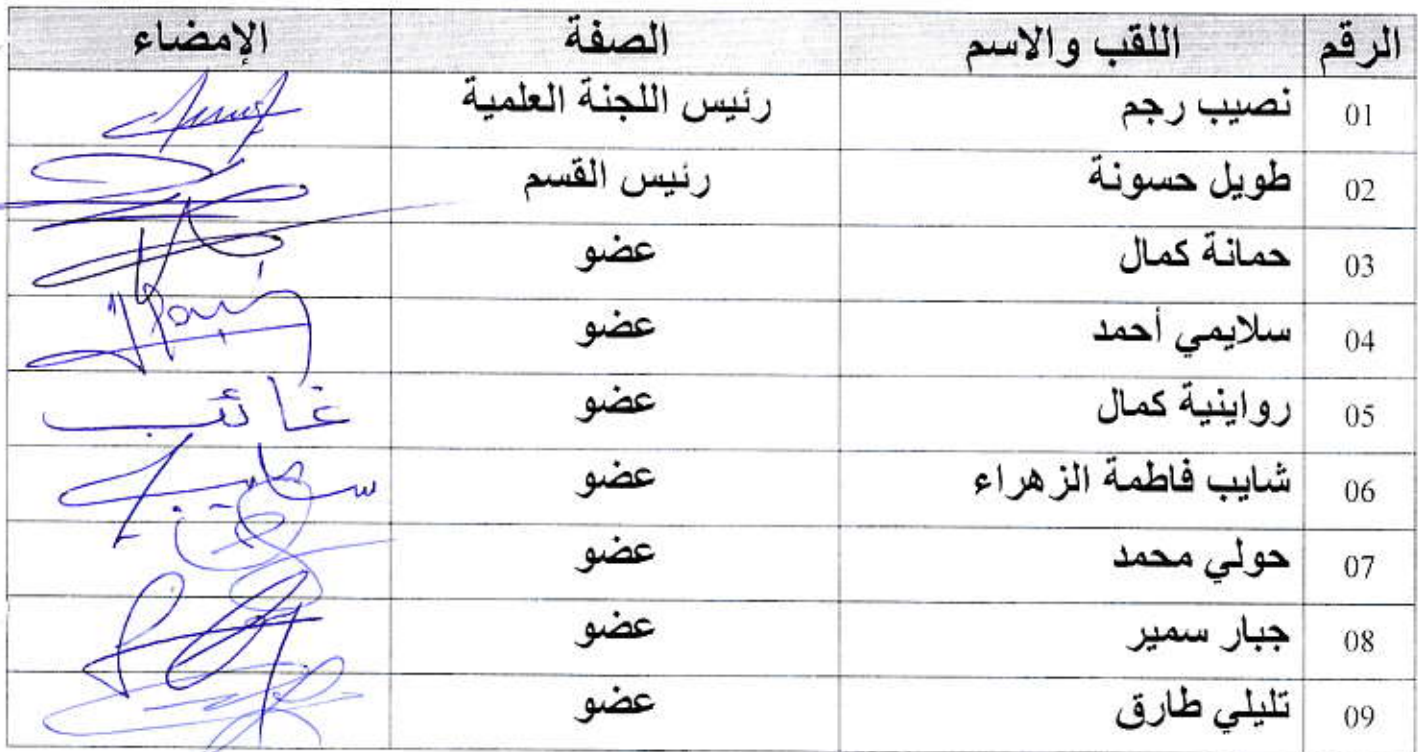 الرقم اللقب والاسم الصفة الإمضاء
01 نصيب رجم رئيس اللجنة العلمية
02 طويل حسونة رئيس القسم
03 حمانة كمال عضو
04 سلايمي أحمد عضو
05 رواينية كمال عضو غائب
06 شايب فاطمة الزهراء عضو
07 حولي محمد عضو
08 جبار سمير عضو
09 تليلي طارق عضو